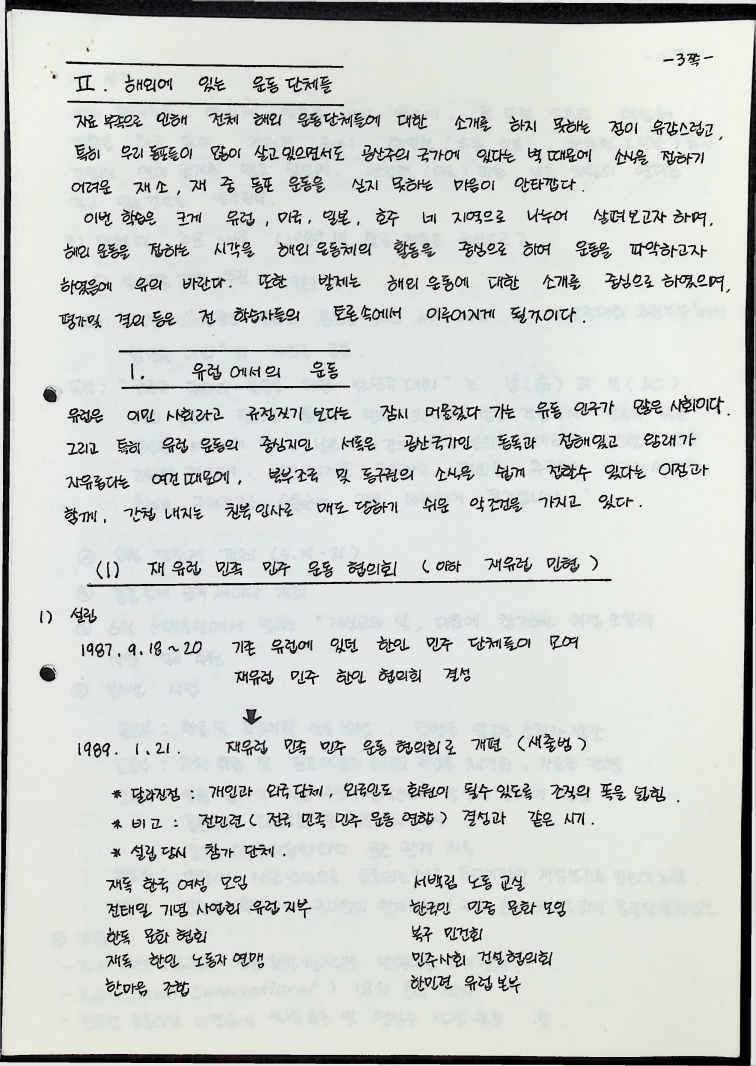 -3쪽-
Ⅱ. 해외에 있는 운동단체들
자료 부족으로 인해 전체 해외 운동단체들에 대한 소개를 하지 못하는 점이 유감스럽고,
특히 우리 동포들이 많이 살고있으면서도 공산주의 국가에 있다는 벽 때문에 소식을 접하기
어려운 재소, 재중 동포 운동을 싣지 못하는 마음이 안타깝다.
이번 학습은 크게 유럽, 미국, 일본, 호주 네 지역으로 나누어 살펴보고자 하며,
해외 운동을 접하는 시각을 해외 운동체의 활동을 중심으로 하여 운동을 파악하고자
하였음에 유의 바란다. 또한 발제는 해외 운동에 대한 소개를 중심으로 하였으며,
평가및 결의 등은 전 학습자들의 토론속에서 이루어지게 될것이다.
1. 유럽에서의 운동
유럽은 이민 사회라고 규정짓기 보다는 잠시 머물렀다 가는 유동 인구가 많은 사회이다.
그리고 특히 유럽 운동의 중심지인 서독은 공산국가인 동독과 접해있고 왕래가
자유롭다는 여건때문에, 북부조국 및 동구권의 소식을 쉽게 접할수 있다는 이점과
함께, 간첩 내지는 친북인사로 매도 당하기 쉬운 악조건을 가지고 있다.
(1) 재유럽 민족 민주 운동 협의회 (이하 재유럽 민협)
1) 설립
1987. 9. 18~20 기존 유럽에 있던 한인 민주 단체들이 모여
재유럽 민주 한인 협의회 결성
1989. 1. 21. 재유럽 민족 민주 운동 협의회로 개편 (새출범)
* 달라진점 : 개인과 외국단체, 외국인도 회원이 될수 있도록 조직의 폭을 넓힘.
* 비고 : 전민련(전국 민족 민주 운동 연합) 결성과 같은 시기.
* 설립당시 참가 단체.
재독 한국 여성 모임 서백림 노동 교실
전태일 기념 사업회 유럽지부 한국인 민중 문화 모임
한독 문화 협회 북구 민건회
재독 한인 노동자 연맹 민주사회 건설협의회
한마음 조합 한민련 유럽본부